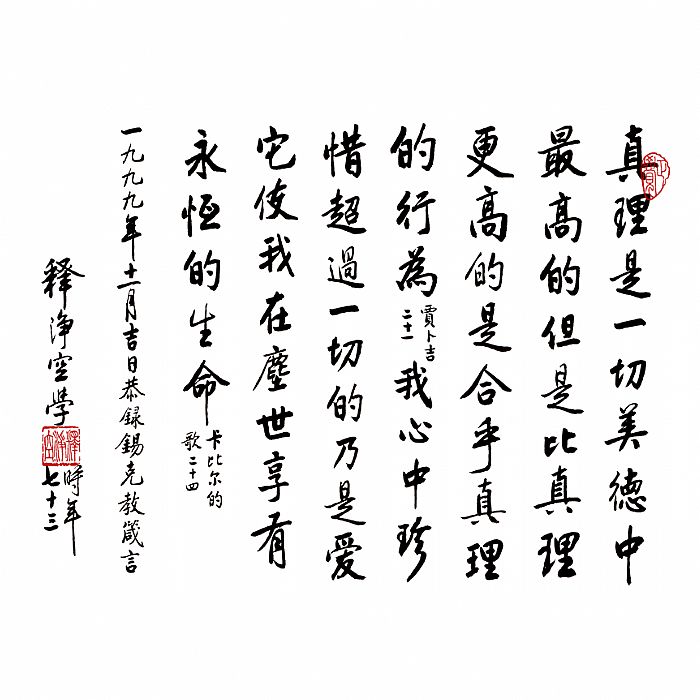 真理是一切美德中
最高的但是比真理
更高的是合乎真理
的行為 賈卜吉 二十一 我心中珍
惜超過一切的乃是愛
它使我在塵世享有
永恒的生命 卡比尔的歌二十四
一九九九年十一月吉日恭録錫克教箴言
释浄空學 時年七十三